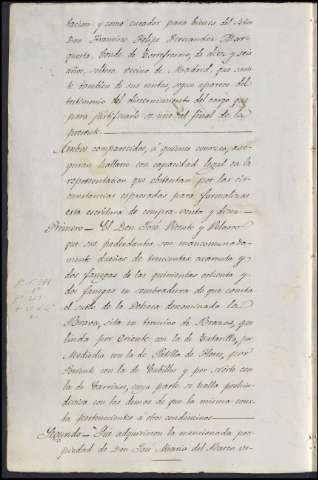 tacion, y como curador para bienes del Señor
Don Francisco Felipe Fernandez Mar-
queta, Conde de Torrefresno, de diez y seis
años, soltero, vecino de Madrid, que
tambien de sus rentas, segun aparece del
testimonio del discernimiento del cargo que
para justificarlo se une al final de la
presente.
Ambos comparecidos, á quienes conozco, ase-
guran hallarse con capacidad legal en la
representacion que obstentan por las cir-
cunstancias espresadas para formalizar
esta escritura de compra-venta y dicen.
Primero = El Don José Vicente y Velasco
que sus poderdantes son mancomunada-
mente dueños de trescientas cuarenta y
dos fanegas de las quinientas ochenta y
dos fanegas en sembradura de que consta
el suelo de la Dehesa denominada la
sita en termino de
linda por Oriente con la de
Mediodia con la de Portillo de Flores, por
Poniente con la de Cubillos y por Norte con
la de cuya parte se halla proin-
divisa con las demas de que la misma cons-
ta pertenecientes á otros condueños.
Segundo = Que adquirieron la mencionada pro-
piedad de Don José Maria del Barco ve-